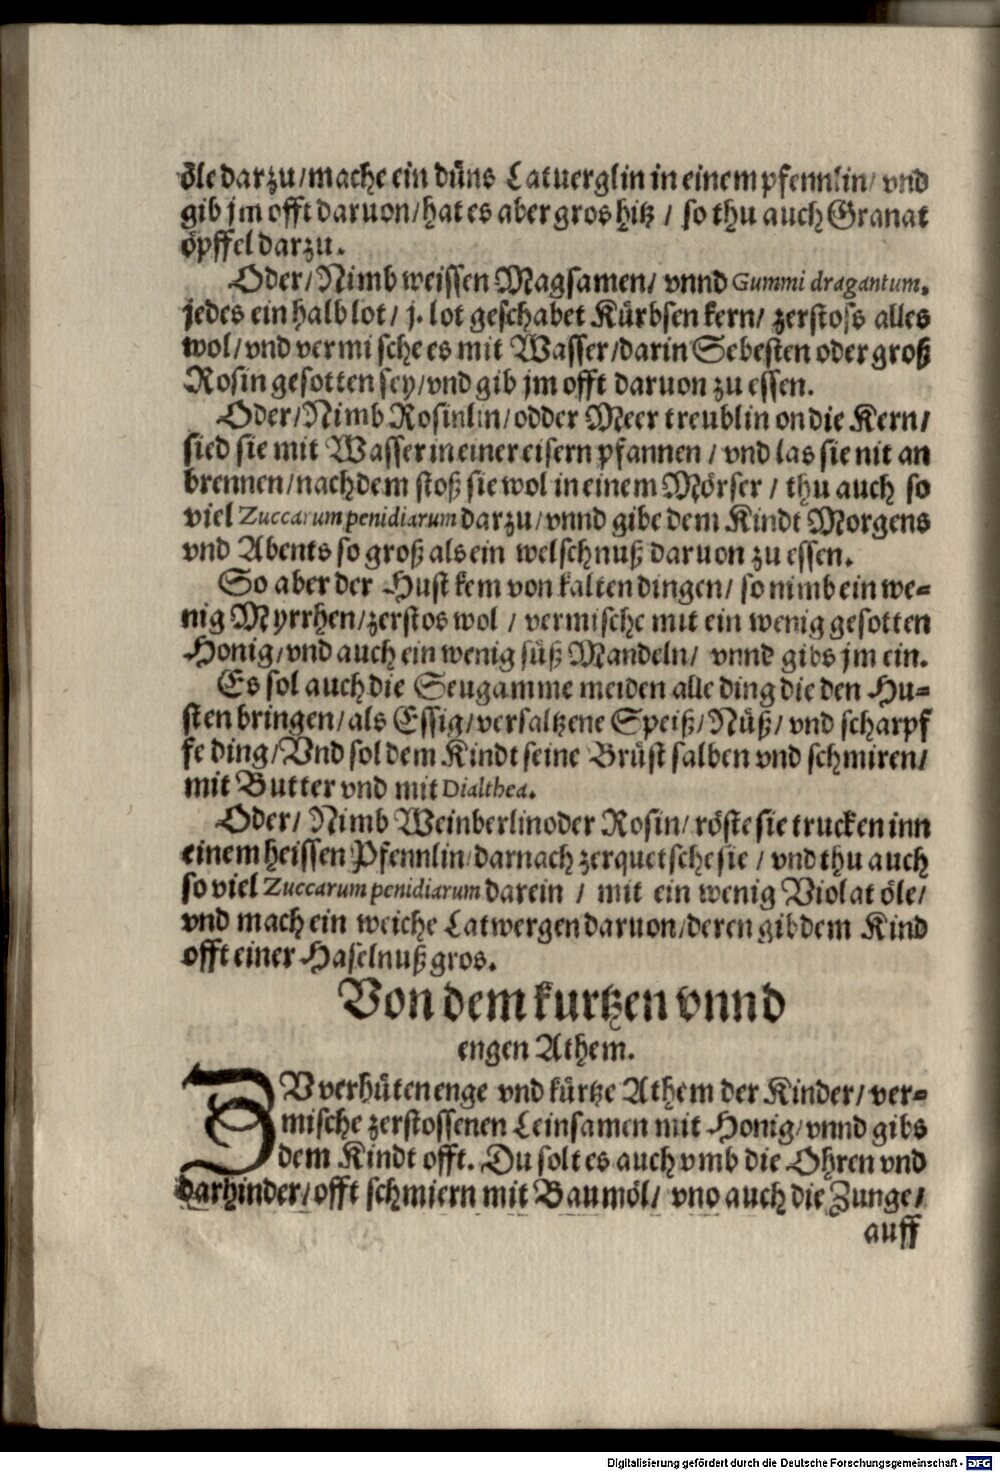 öle darzu/mache ein düns Latuerglin in einem pfennlin/ vnd
gib jm offt daruon/hat es aber gros hitz / so thu auch Granat
öpffel darzu.
Oder/Nimb weissen Magsamen/ vnnd Gummi dragantum.
jedes ein halb lot/ j. lot geschabet Kürbsen kern/ zerstoss alles
wol/vnd vermische es mit Wasser/darin Sebesten oder groß
Rosin gesotten sey/vnd gib jm offt daruon zu essen.
Oder/Nimb Rosinlin/odder Meer treublin on die Kern/
sied sie mit Wasser in einer eisern pfannen / vnd las sie nit an
brennen/nachdem stoß sie wol in einem Mörser / thu auch so
viel Zuccarum penidiarum darzu/vnnd gibe dem Kindt Morgens
vnd Abents so groß als ein welschnuß daruon zu essen.
So aber der Hust kem von kalten dingen/ so nimb ein we-
nig Myrrhen/zerstos wol / vermische mit ein wenig gesotten
Honig/vnd auch ein wenig süß Mandeln/ vnnd gibs jm ein.
Es sol auch die Seugamme meiden alle ding die den Hu-
sten bringen/als Essig/versaltzene Speiß/Nüß/vnd scharpf
fe ding/Vnd sol dem Kindt seine Brüst salben vnd schmiren/
mit Butter vnd mit Dialthea.
Oder/ Nimb Weinberlin oder Rosin/röste sie trucken inn
einem heissen Pfennlin/darnach zerquetsche sie / vnd thu auch
so viel Zuccarum penidiarum darein / mit ein wenig Violat öle/
vnd mach ein weiche Latwergen daruon/deren gib dem Kind
offt einer Haselnuß gros.
Von dem kurtzen vnnd
engen Athem.
ZV verhüten enge vnd kürtze Athem der Kinder/ ver-
mische zerstossenen Leinsamen mit Honig/vnnd gibs
dem Kindt offt. Du solt es auch vmb die Ohren vnd
darhinder/offt schmiern mit Baumöl/ vnd auch die Zunge/
auff
Digitalisierung gefördert durch die Deutsche Forschungsgemeinschaft - DFG